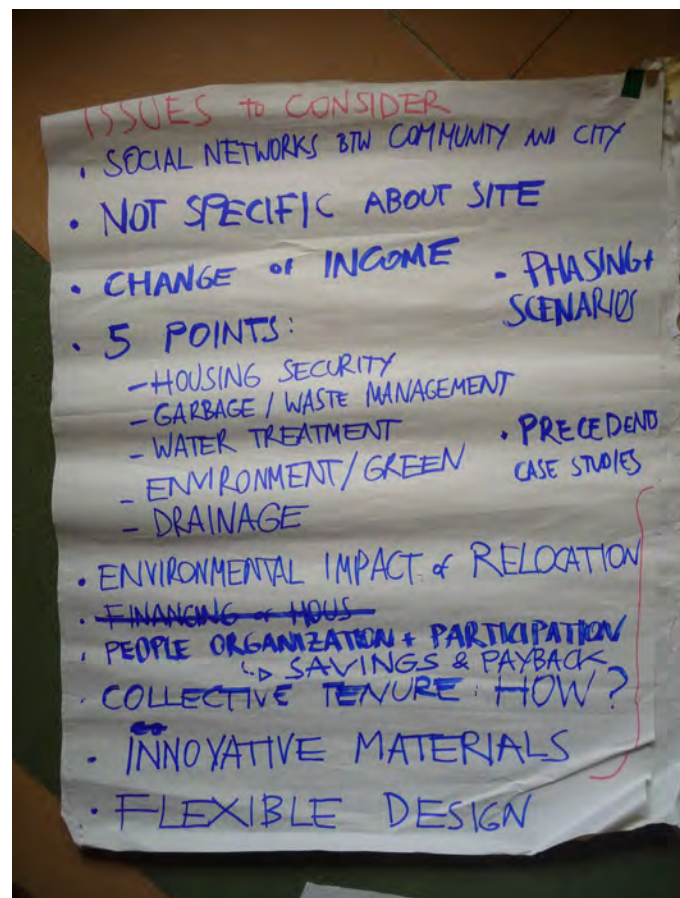 ISSUES to CONSIDER
• SOCIAL NETWORKS BTW COMMUNITY AND CITY
• NOT SPECIFIC ABOUT SITE
• CHANGE of INCOME
- PHASING+
SCENARIOS
• 5 POINTS:
- HOUSING SECURITY
- GARBAGE / WASTE MANAGEMENT
- WATER TREATMENT
- ENVIRONMENT/GREEN
- DRAINAGE
• PRECEDEND
CASE STUDIES
• ENVIRONMENTAL IMPACT of RELOCATION
• FINANCING of HOUS
• PEOPLE ORGANIZATION + PARTICIPATION
↳ SAVINGS & PAYBACK
• COLLECTIVE TENURE: HOW?
• INNOVATIVE MATERIALS
• FLEXIBLE DESIGN